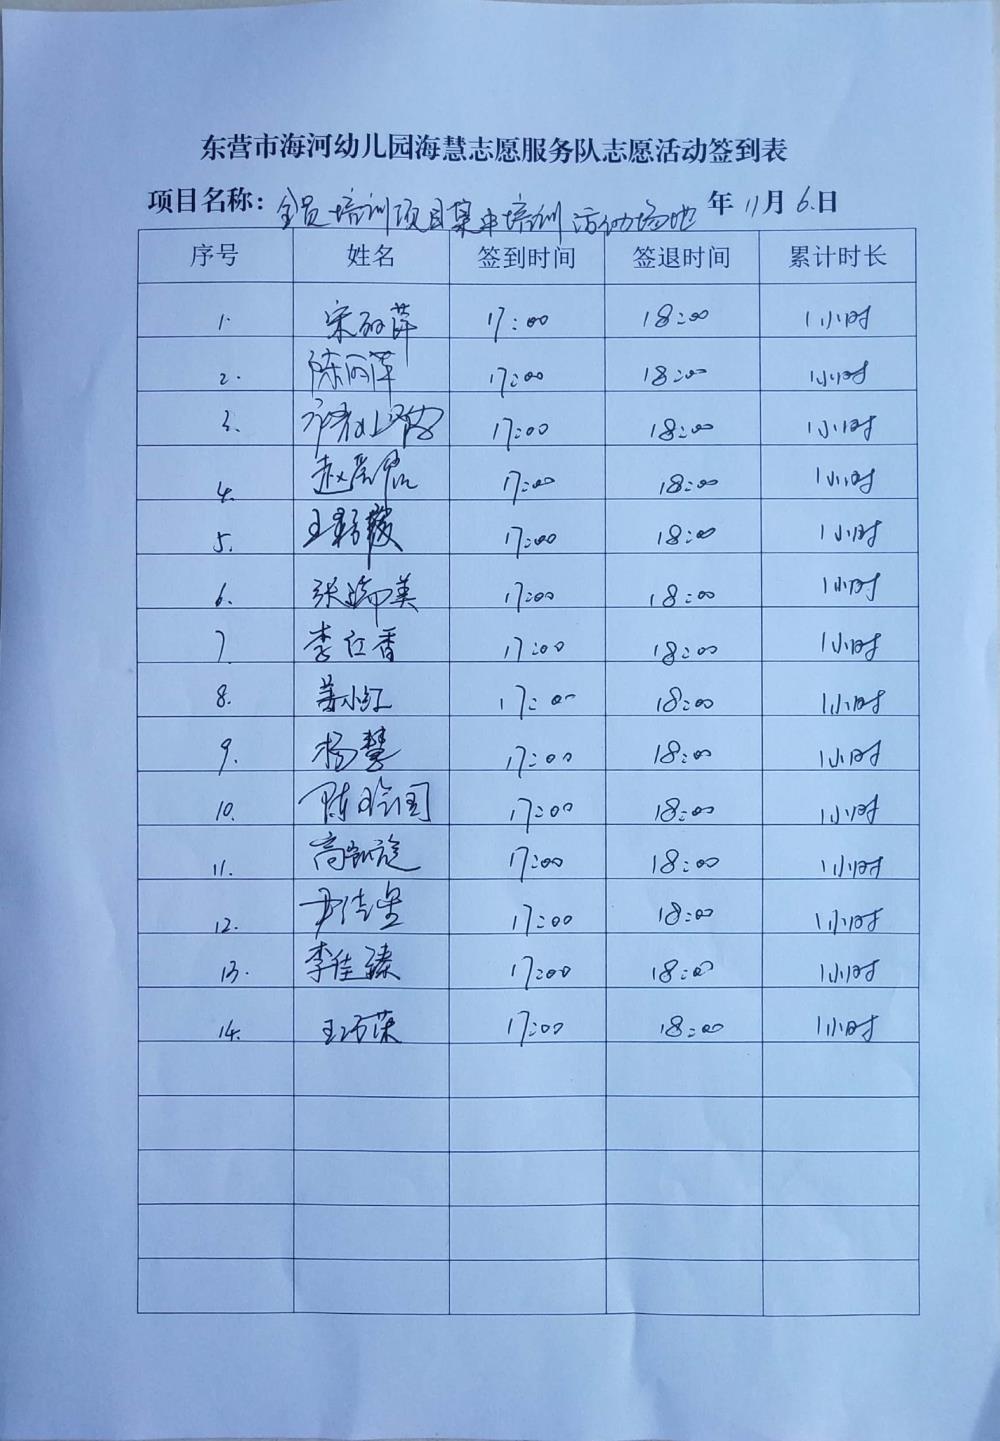 东营市海河幼儿园海慧志愿服务队志愿活动签到表
项目名称：全员培训项目集中培训活动场地 年 11月 6日
序号 姓名 签到时间 签退时间 累计时长
1. 宋丽萍 17:00 18:00 1小时
2. 陈丽萍 17:00 18:00 1小时
3. 17:00 18:00 1小时
4. 赵 17:00 18:00 1小时
5. 王 17:00 18:00 1小时
6. 张瑞美 17:00 18:00 1小时
7 李红香 17:00 18:00 1小时
8. 姜小红 17:00 18:00 1小时
9. 杨慧 17:00 18:00 1小时
10. 陈 17:00 18:00 1小时
11. 高凯旋 17:00 18:00 1小时
12. 尹佳星 17:00 18:00 1小时
13. 李佳臻 17:00 18:00 1小时
14. 王巧荣 17:00 18:00 1小时